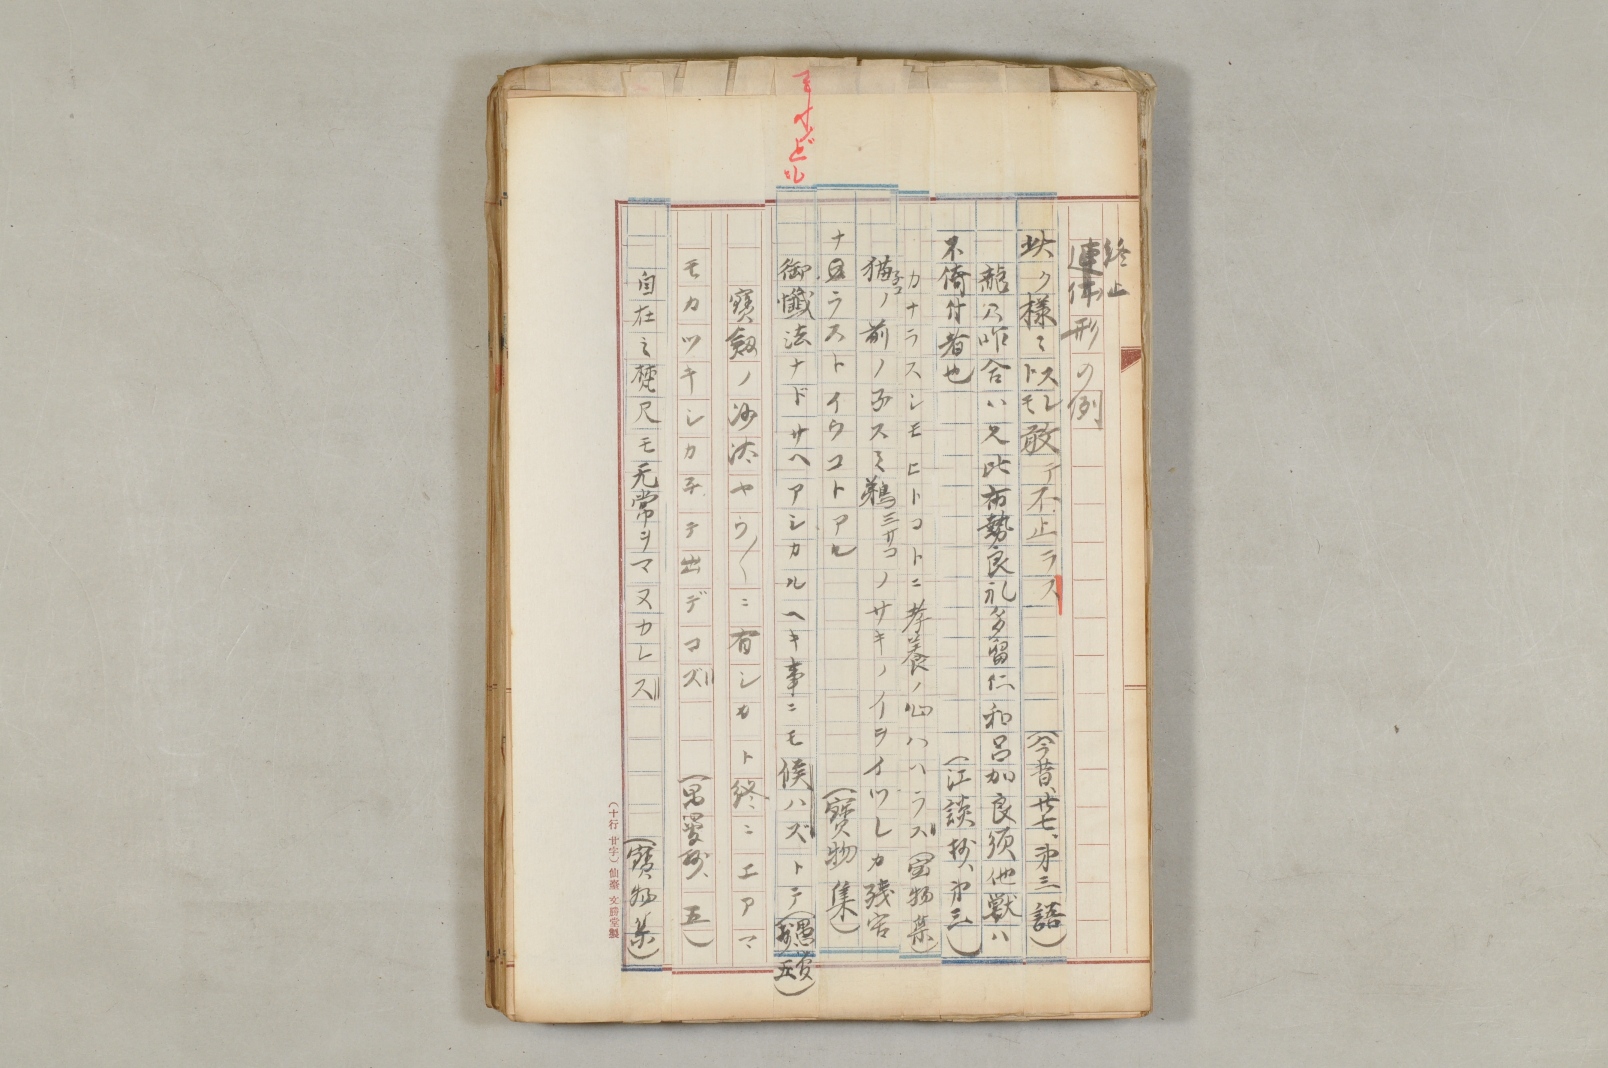 終止
連体形の例
此ク様ミトスレトモ敢テ不止ラス (今昔、廿七、第三語)
龍乃咋合ハ尤比布勢良礼多留仁和呂加良須他獣ハ
不倚付者也 (江談抄、第三)
カナラスシモヒトコトニ孝養ノ心ハハラス(宝物集)
猫ノ前ノ子スミ鵜ニヱコノサキノイヲイツレカ残害
ナ ラストイウコトアル (寶物集)
御懺法ナドサヘアシカルヘキ事ニモ候ハズトテ(愚管抄五)
寶剱ノ沙汰ヤウ〳〵ニ有シカト終ニエアマ
モカツキシカネテ出デコズ (愚管抄、五)
自在ミ梵尺モ无常ヲマヌカレズ (寶物集)
(十行 廿字) 仙臺 文勝堂製